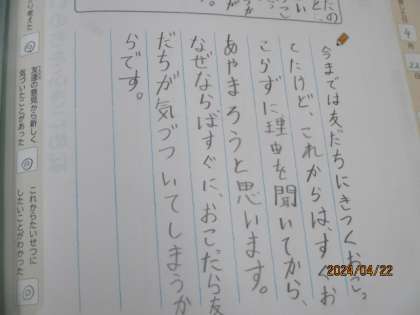 今までは友だちにきつくおこっ
てたけど、これからは、すぐお
こらずに理由を聞いてから、
あやまろうと思います。
なぜならばすぐに、おこったら友
だちが気づついてしまうか
らです。
友達の意見から新しく
気づいたことがあった
これからたいせつに
したいことがわかった
2024/04/22